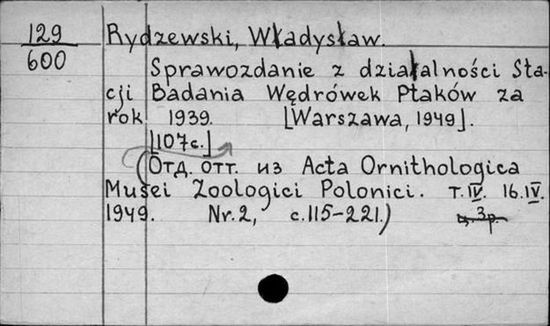 129
600
Rydzewski, Władysław.
Sprawozdanie z działalności Sta-
cji Badania Wędrówek Ptaków za
rok 1939. [Warszawa, 1949].
[107с.]
(Отд. отт. из Acta Ornithologica
Musei Zoologici Polonici. т.IV. 16.IV.
1949. Nr.2, с.115-221.) ц.3р.